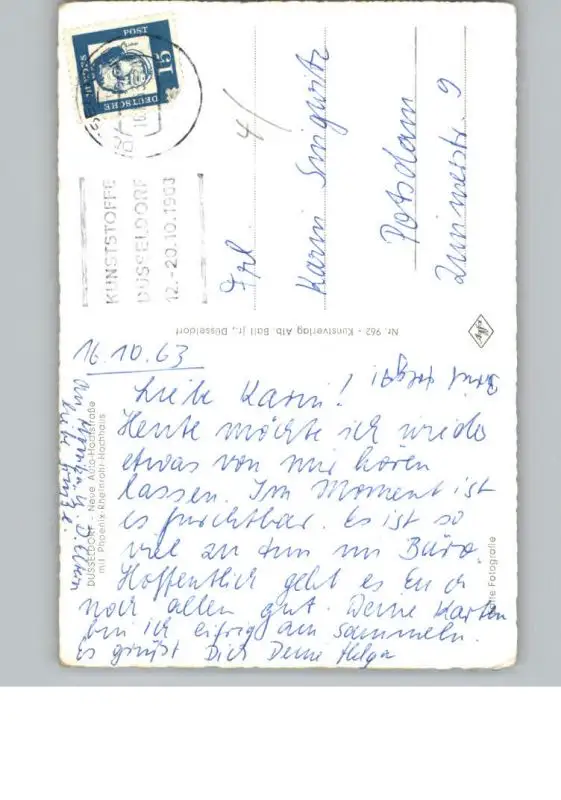 DEUTSCHE
POST
15
KUNSTSTOFFE
DÜSSELDORF
12.-20.10.1963
4/
Frl.
Karin
Potsdam
9
Nr. 962 - Kunstverlag Alb. Ball jr., Düsseldorf
16.10.63
Liebe Karin!
Heute möchte ich wieder
etwas von mir hören
lassen. Im Moment ist
es furchtbar. Es ist so
viel zu tun im Büro.
Hoffentlich geht es Euch
noch allen gut. Deine Karten
bin ich eifrig am sammeln.
Es grüßt Dich Deine Helga
DÜSSELDORF - Neue Auto-Hochstraße
mit Phoenix-Rheinrohr-Hochhaus
Fotografie